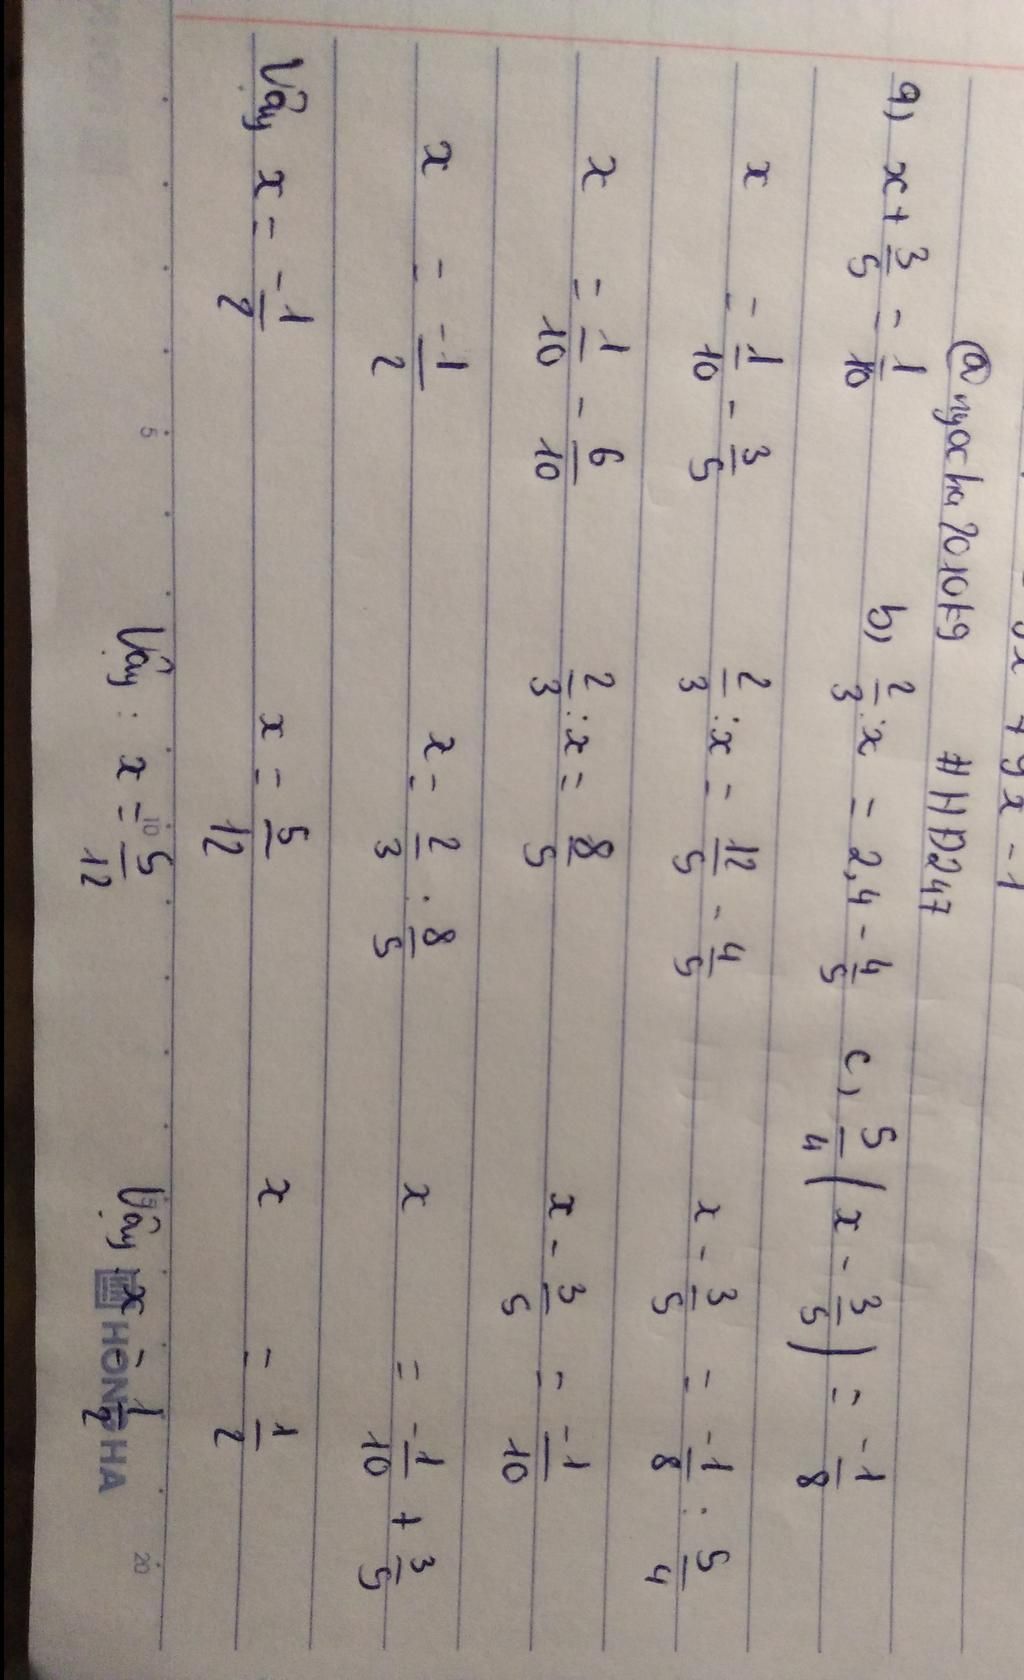 @ngocha2010k9 #HD247
a) x + 3/5 = 1/10
x = 1/10 - 3/5
x = 1/10 - 6/10
x = -1/2
Vậy x = -1/2
b) 2/3 : x = 2,4 - 4/5
2/3 : x = 12/5 - 4/5
2/3 : x = 8/5
x = 2/3 : 8/5
x = 5/12
Vậy : x = 5/12
c, 5/4 (x - 3/5) = -1/8
x - 3/5 = -1/8 : 5/4
x - 3/5 = -1/10
x = -1/10 + 3/5
x = 1/2
Vậy x = 1/2
5 10 20
HONG HA